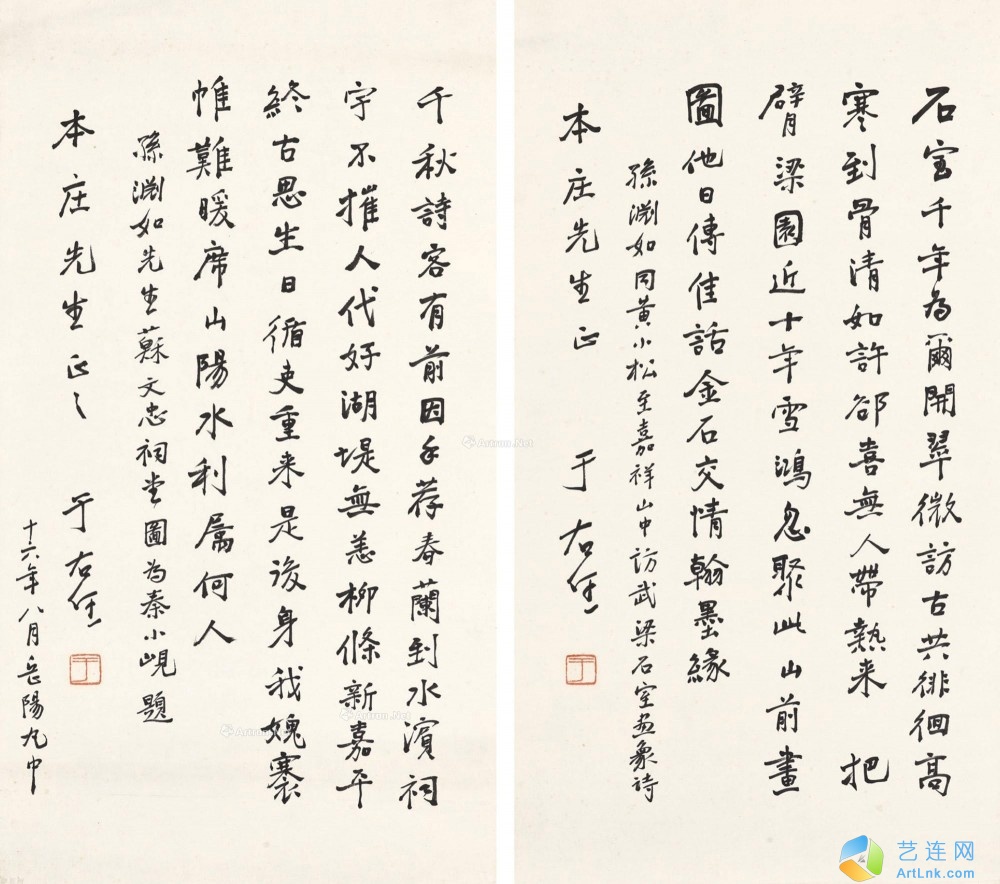 石室千年為爾開翠微訪古共徘徊高
寒到骨清如許卻喜無人帶熱来 把
臂梁園近十年雪鴻忽聚此山前畫
圖他日傳佳話金石交情翰墨緣
孫淵如同黃小松至嘉祥山中訪武梁石室畫象詩
本庄先生正 于右任
千秋詩客有前因手荐春蘭到水濱祠
宇不摧人代好湖堤無恙柳條新嘉平
終古思生日循吏重来是後身我媿褰
帷難暖席山陽水利属何人
孫淵如先生蘇文忠祠堂圖為秦小峴題
本庄先生正之 于右任
十六年八月岳陽丸中
Artron.Net
Artron.Net
Artron.Net
Artron.Net
艺连网
ArtLnk.com